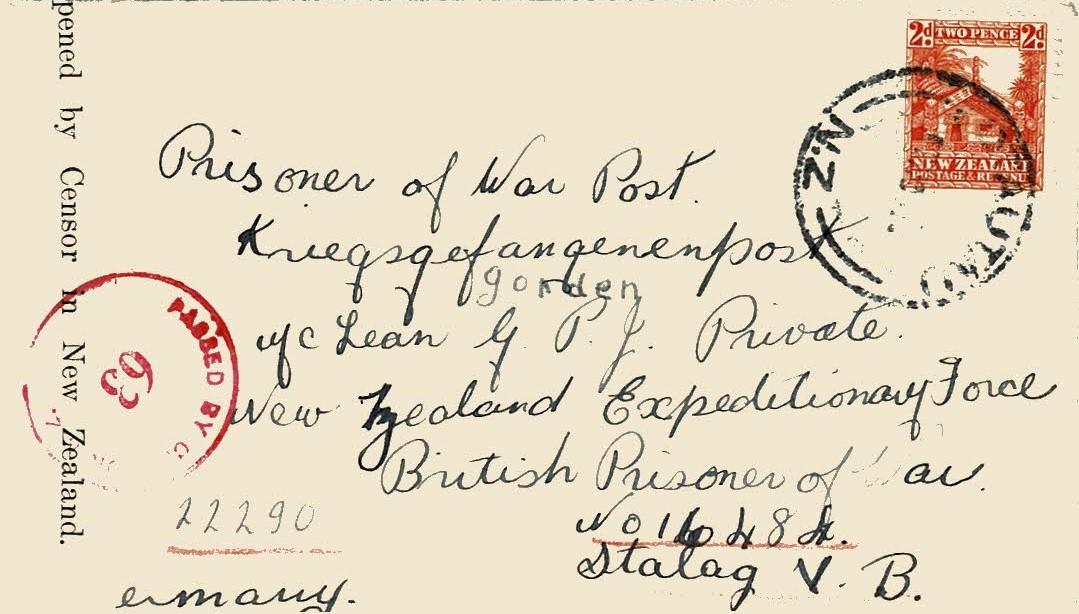 2d TWO PENCE 2d
NEW ZEALAND
POSTAGE & REVENUE
N.Z.
Prisoner of War Post.
Kriegsgefangenenpost
gorden
McLean G P. J. Private.
New Zealand Expeditionary Force
British Prisoner of War.
No 16484.
Stalag V. B.
22290
ermany.
pened by Censor in New Zealand.
PASSED BY C